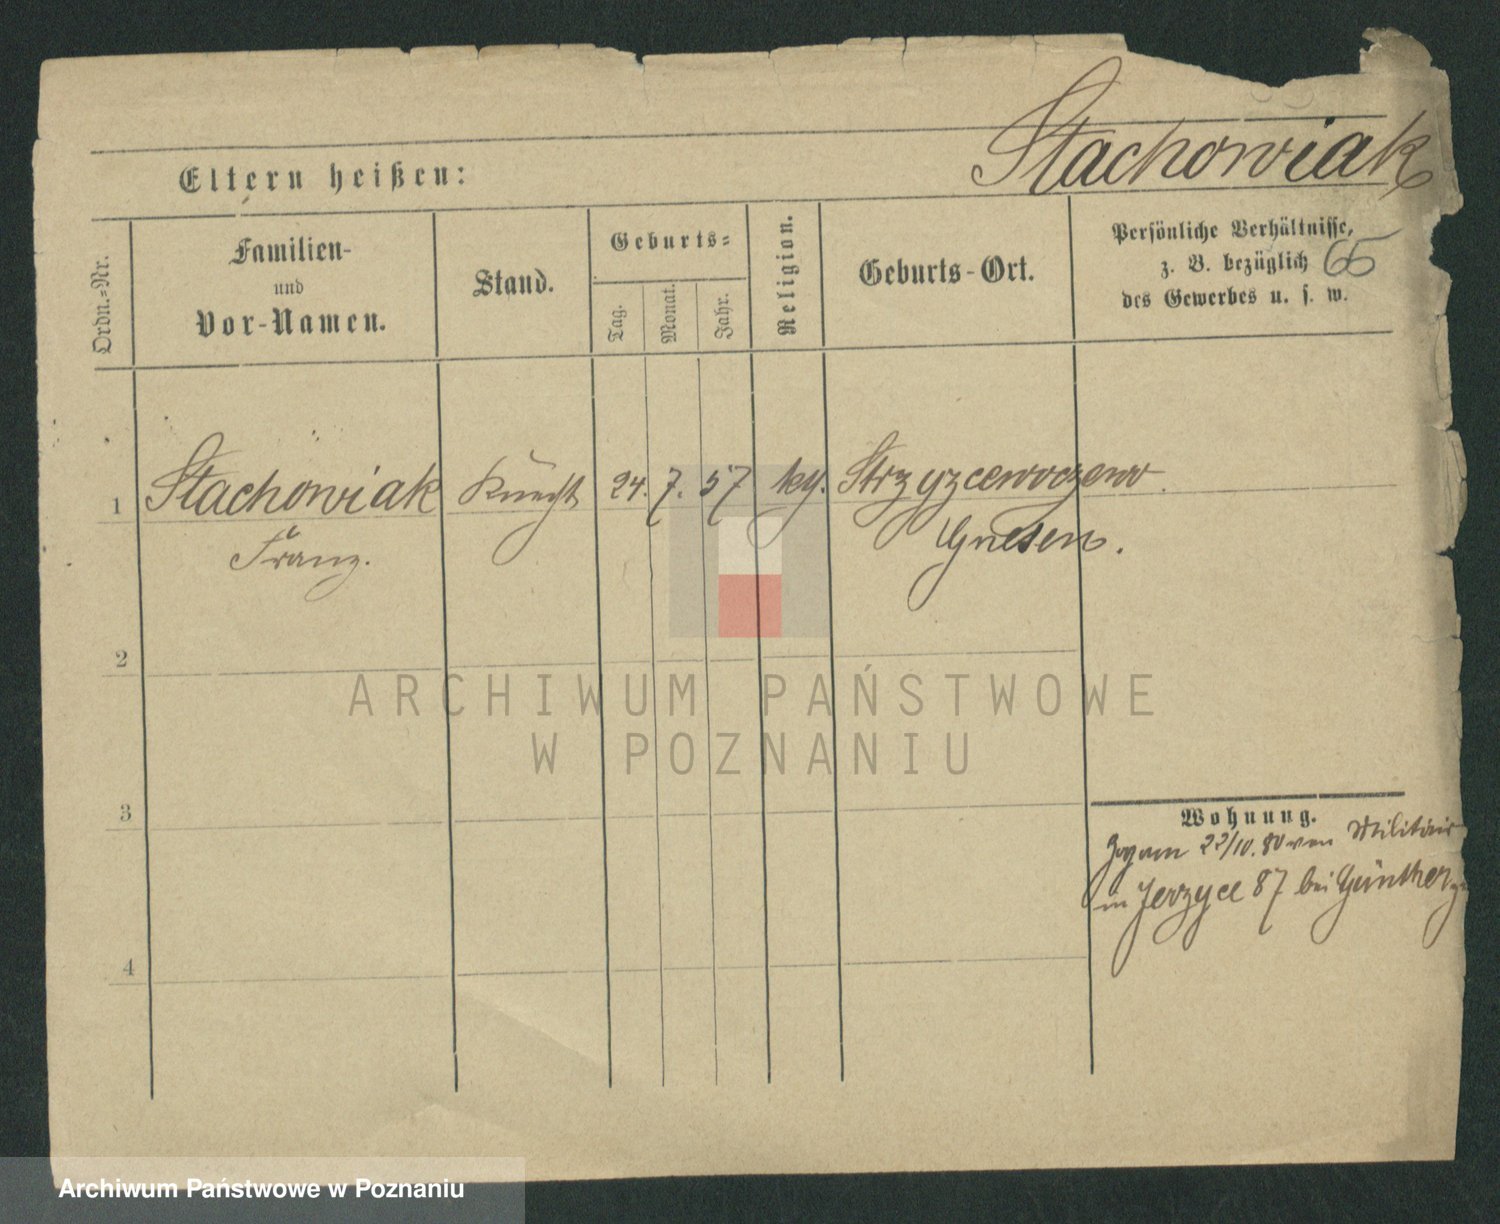 Stachowiak
Eltern heißen:
Ordn.=Nr.
Familien-
und
Vor-Namen.
Stand.
Geburts=
Tag.
Monat.
Jahr.
Religion.
Geburts-Ort.
Persönliche Verhältnisse,
z. B. bezüglich
des Gewerbes u. s. w.
65
1 Stachowiak Knecht 24. 7. 57 Strzyzcewoczewo
Franz. Gnesen.
2
3
4
Wohnung.
22/10. 80 von Militair
in Jerzyce 87 bei Günther
ARCHIWUM PAŃSTWOWE
W POZNANIU
Archiwum Państwowe w Poznaniu